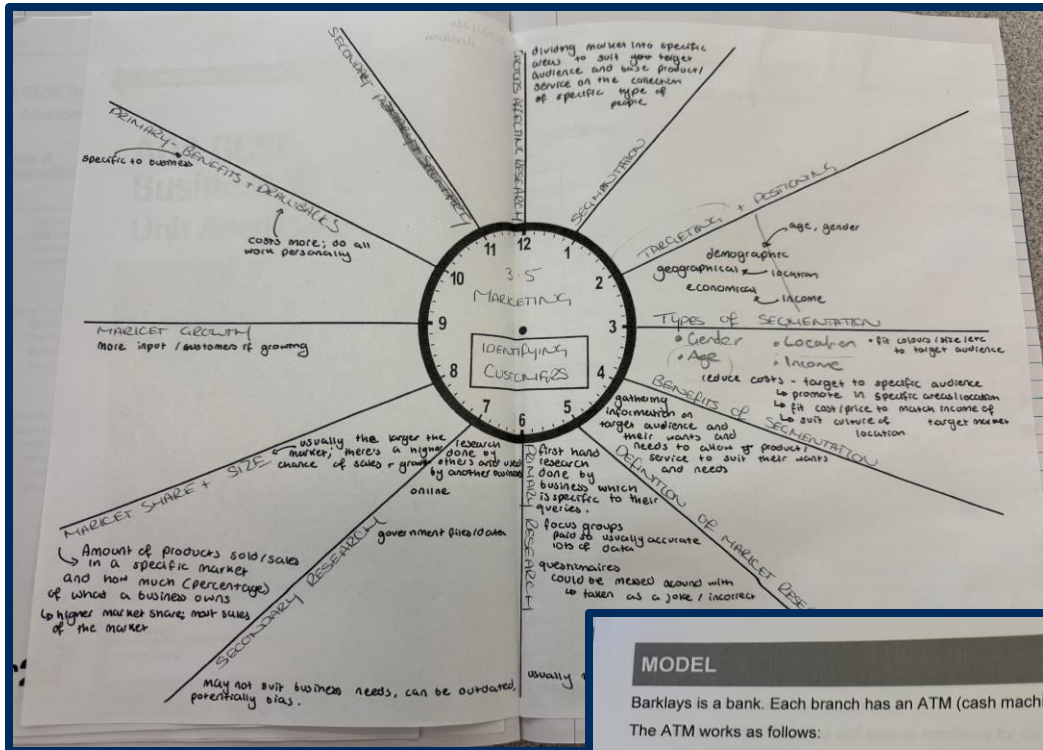 SEGMENTATION
dividing market into specific
areas to suit your target
audience and base product/
service on the collection
of specific type of
people
TARGETING + POSITIONING
age, gender
demographic
geographical location
economical
income
TYPES OF SEGMENTATION
• Gender
• Age
• Location
• Income
• fit colours/size/etc
to target audience
BENEFITS OF SEGMENTATION
reduce costs - target to specific audience
↳ promote in specific areas/location
↳ fit cost/price to match income of
target market
↳ suit culture of
location
DEFINITION OF MARKET RESE
gathering
information on
target audience and
their wants and
needs to allow product/
service to suit their wants
and needs
PRIMARY RESEARCH
first hand
research
done by
business which
is specific to their
queries.
focus groups
paid so usually accurate
lots of data
questionaires
could be messed around with
↳ taken as a joke / incorrect
usually
SECONDARY RESEARCH
research
done by
others and used
by another business
online
government files/data
may not suit business needs, can be outdated,
potentially bias.
MARKET SHARE + SIZE
usually the larger the
market; there's a higher
chance of sales + growth
↳ Amount of products sold/sales
in a specific market
and how much (percentage)
of what a business owns
↳ higher market share; most sales
of the market
MARKET GROWTH
more input / customers if growing
PRIMARY - BENEFITS + DRAWBACKS
specific to business
costs more; do all
work personally
SECONDARY
PRIMARY + SECONDARY
FACTORS AFFECTING RESEARCH
12
1
2
3
4
5
6
7
8
9
10
11
3.5
MARKETING
IDENTIFYING
CUSTOMERS
MODEL
Barklays is a bank. Each branch has an ATM (cash machi
The ATM works as follows: